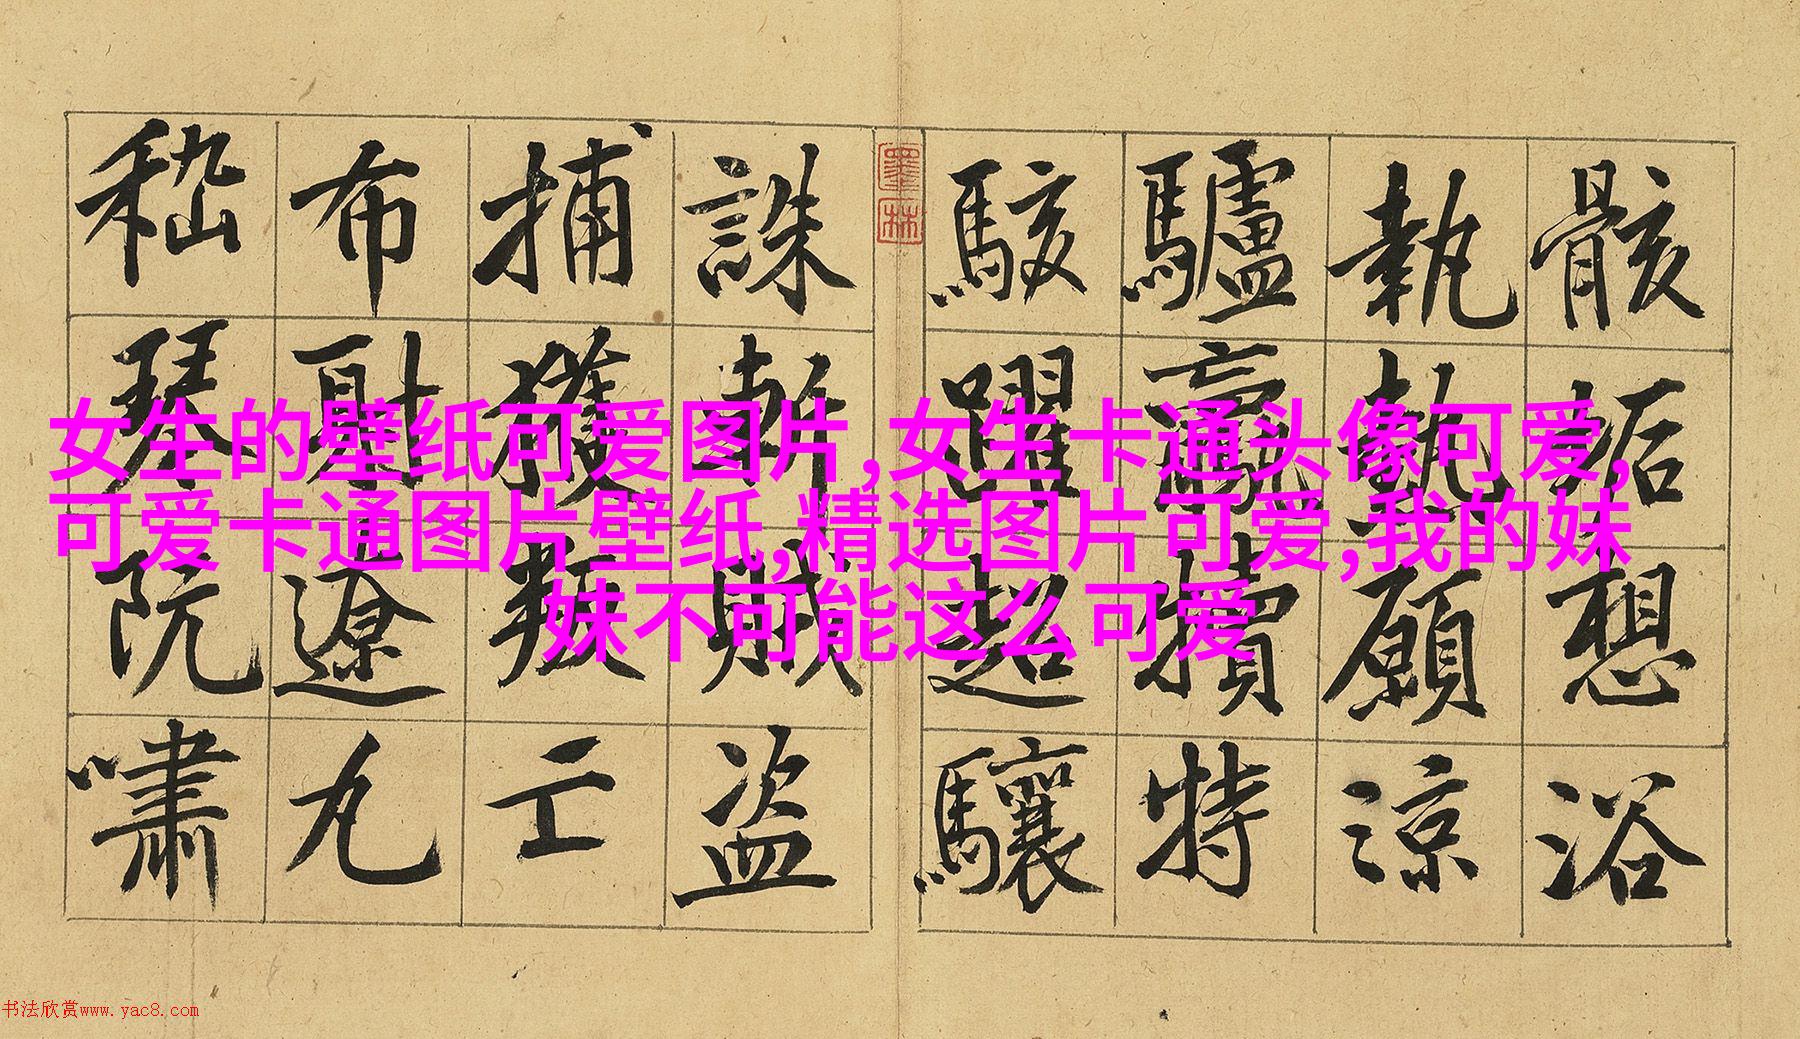 女生的壁纸可爱图片,女生卡通头像可爱,
可爱卡通图片壁纸,精选图片可爱,我的妹
妹不可能这么可爱
骸垢想浴
執熱願涼
驢驘犢特
駭躍超驤
墨林
誅斬賊盜
捕獲叛亡
布射遼丸
嵇琴阮嘯
书法欣赏www.yac8.com